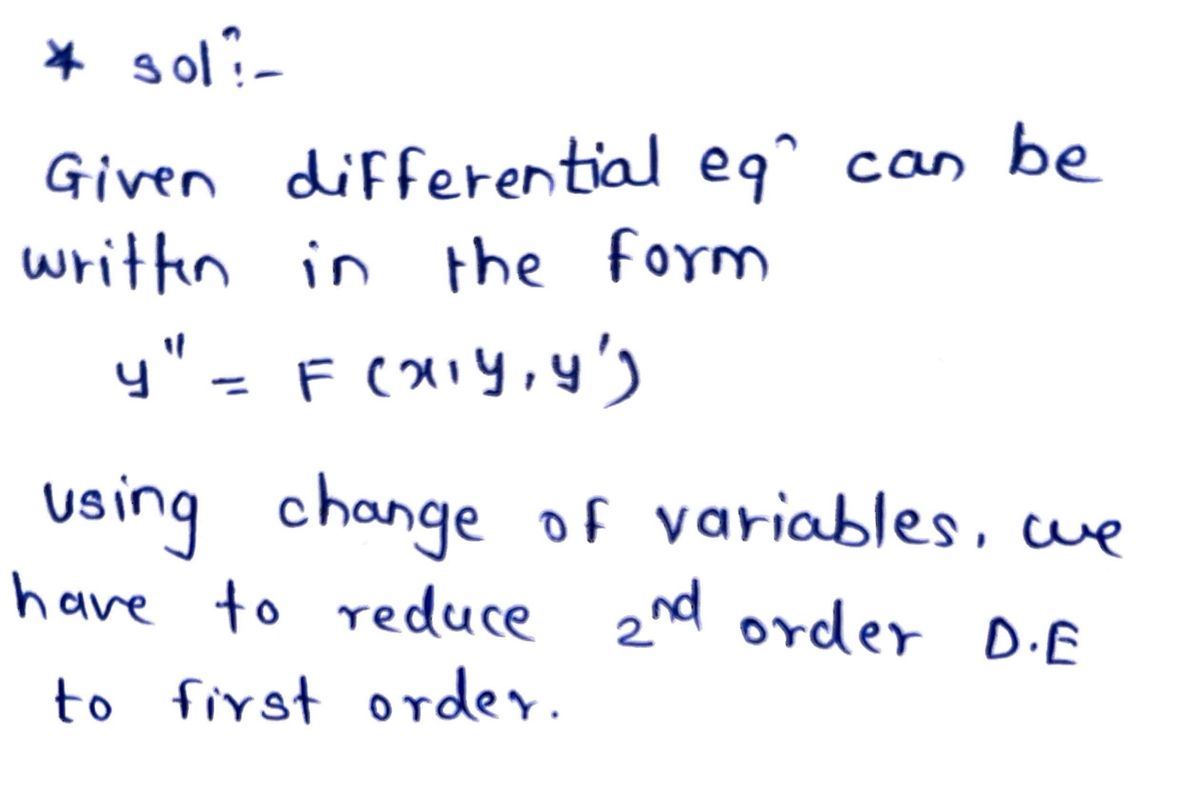 * solⁿ:-
Given differential eqⁿ can be
written in the form
y" = F (x, y, y')
using change of variables, we
have to reduce 2nd order D.E
to first order.